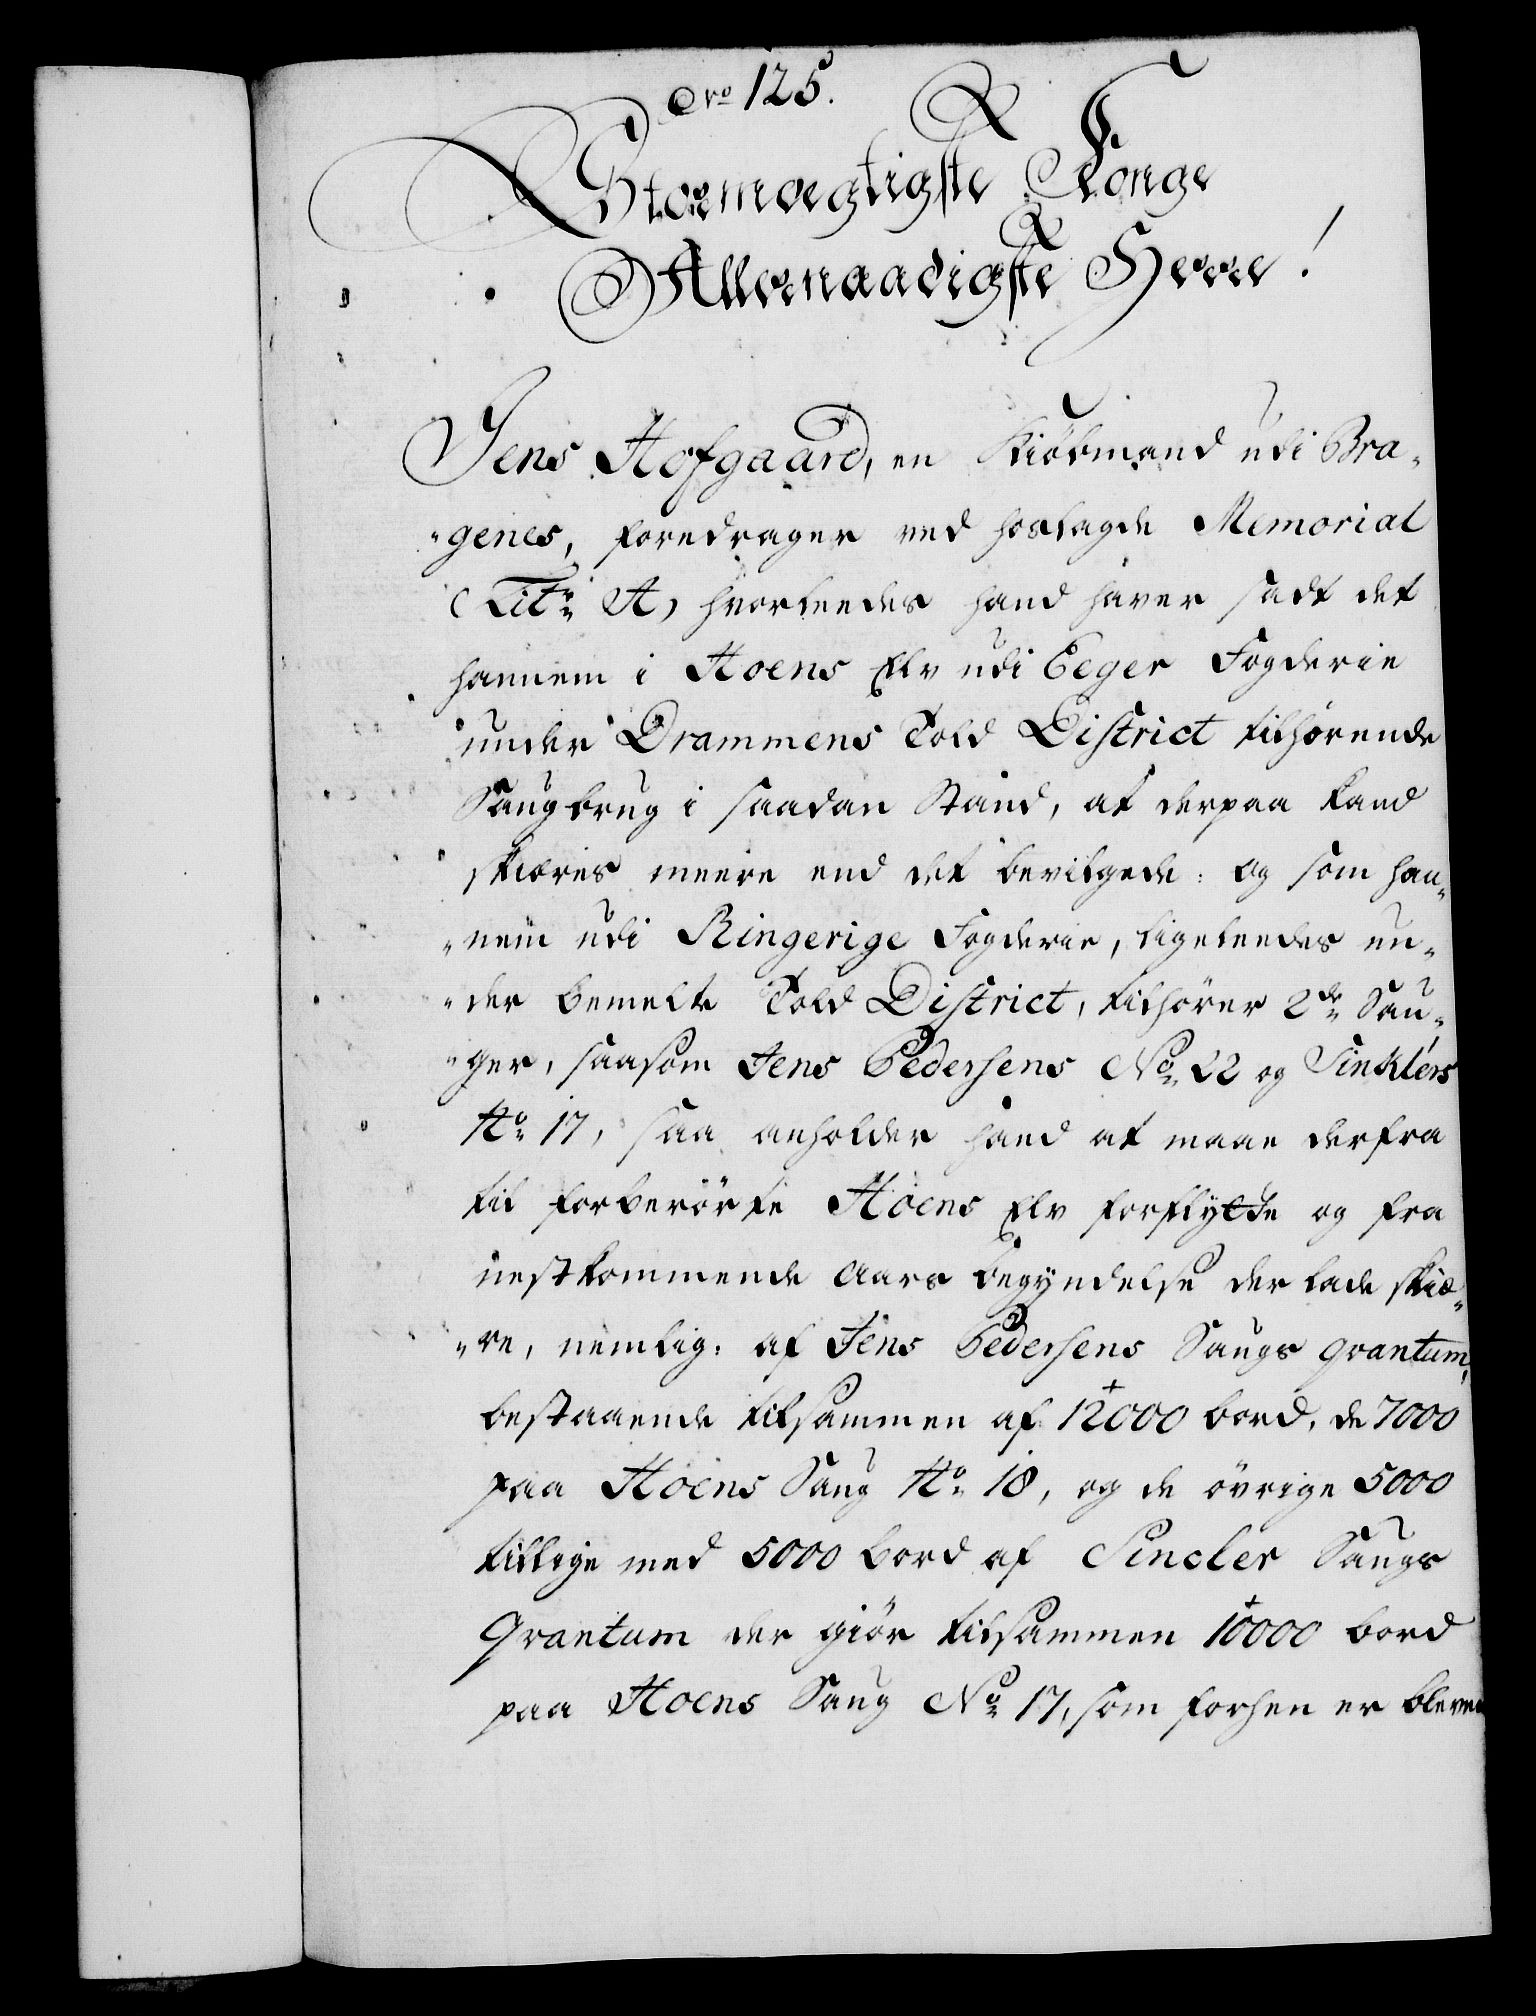 Nro 125.
Stormægtigste Konge
Allernaadigste Herre!
Jens Hofgaard, en Kiöbmand udi Bra-
-genes, foredrager ved hoslagde Memorial
(Litr A) hvorleedes hand haver sadt det
hannem i Hoens Elv udi Eeger Fogderie
under Drammens Told District tilhørende
Saugbrug i saadan Stand, at derpaa kand
skiæres meere end det bevilgede: og som han-
-nem udi Ringerige Fogderie, ligeleedes un-
-der bemelte Told District, tilhører 2de Sau-
-ger, saasom Jens Pedersens No 22 og Sinklers
No 17, saa anholder hand at maae derfra
til forberörte Hoens Elv forflytte og fra
nestkommende Aars Begyndelse der lade skiæ-
-re, nemlig: af Jens Pedersens Saugs Qvantum,
bestaaende tilsammen af 12000 bord, de 7000
paa Hoens Saug No 18, og de övrige 5000
tillige med 5000 bord af Sincler Saugs
Qvantum der giör tilsammen 10000 bord
paa Hoens Saug No 17, som forhen er bleven